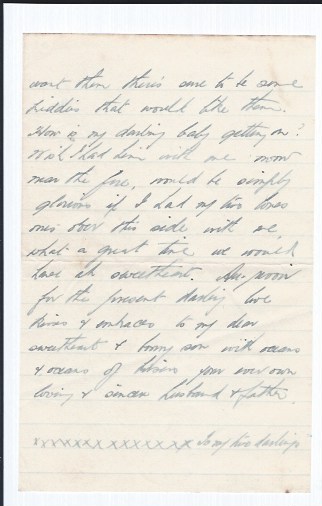 want them there's sure to be some
kiddies that would like them.
How is my darling baby getting on?
Wish I had him with me now
near the fire, would be simply
glorious if I had my two loves
ones over this side with me,
what a great time we would
have eh sweetheart. Au-revoir
for the present darling love
kisses & embraces to my dear
sweetheart & bonny son with oceans
& oceans of kisses your ever own
loving & sincere husband & father.
xxxxxxxxxxxxxxxx to my two darlings